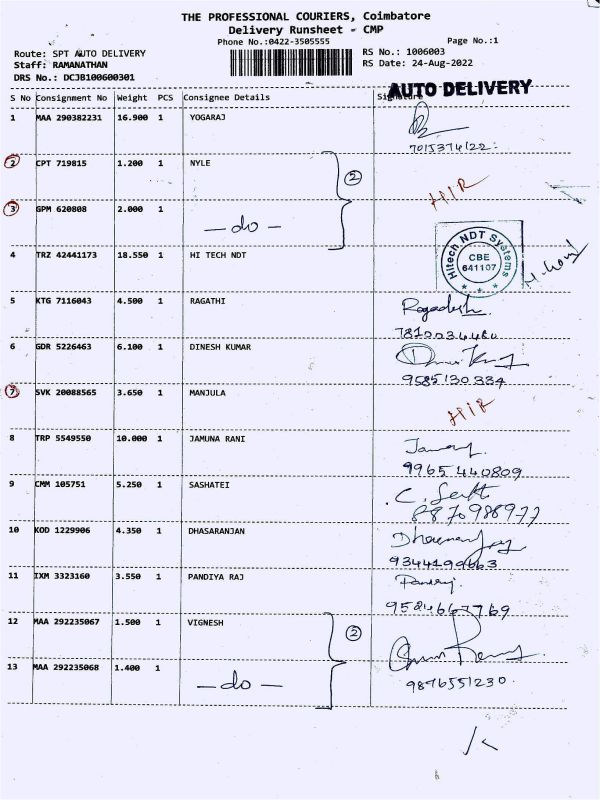 THE PROFESSIONAL COURIERS, Coimbatore
Delivery Runsheet - CMP
Phone No.:0422-3505555 Page No.:1
Route: SPT AUTO DELIVERY RS No.: 1006003
Staff: RAMANATHAN RS Date: 24-Aug-2022
DRS No.: DCJB100600301
AUTO DELIVERY
S No Consignment No Weight PCS Consignee Details Signature
1 MAA 290382231 16.900 1 YOGARAJ
2 CPT 719815 1.200 1 NYLE ② HIR
3 GPM 620808 2.000 1 — do —
4 TRZ 42441173 18.550 1 HI TECH NDT
Hitech NDT Systems
CBE
641107
5 KTG 7116043 4.500 1 RAGATHI Ragadesh
6 GDR 5226463 6.100 1 DINESH KUMAR
9585130334
7 SVK 20088565 3.650 1 MANJULA HIR
8 TRP 5549550 10.000 1 JAMUNA RANI
9965440809
9 CMM 105751 5.250 1 SASHATEI
8870988977
10 KOD 1229906 4.350 1 DHASARANJAN
11 IXM 3323160 3.550 1 PANDIYA RAJ
12 MAA 292235067 1.500 1 VIGNESH ②
13 MAA 292235068 1.400 1 — do —
9896551230.